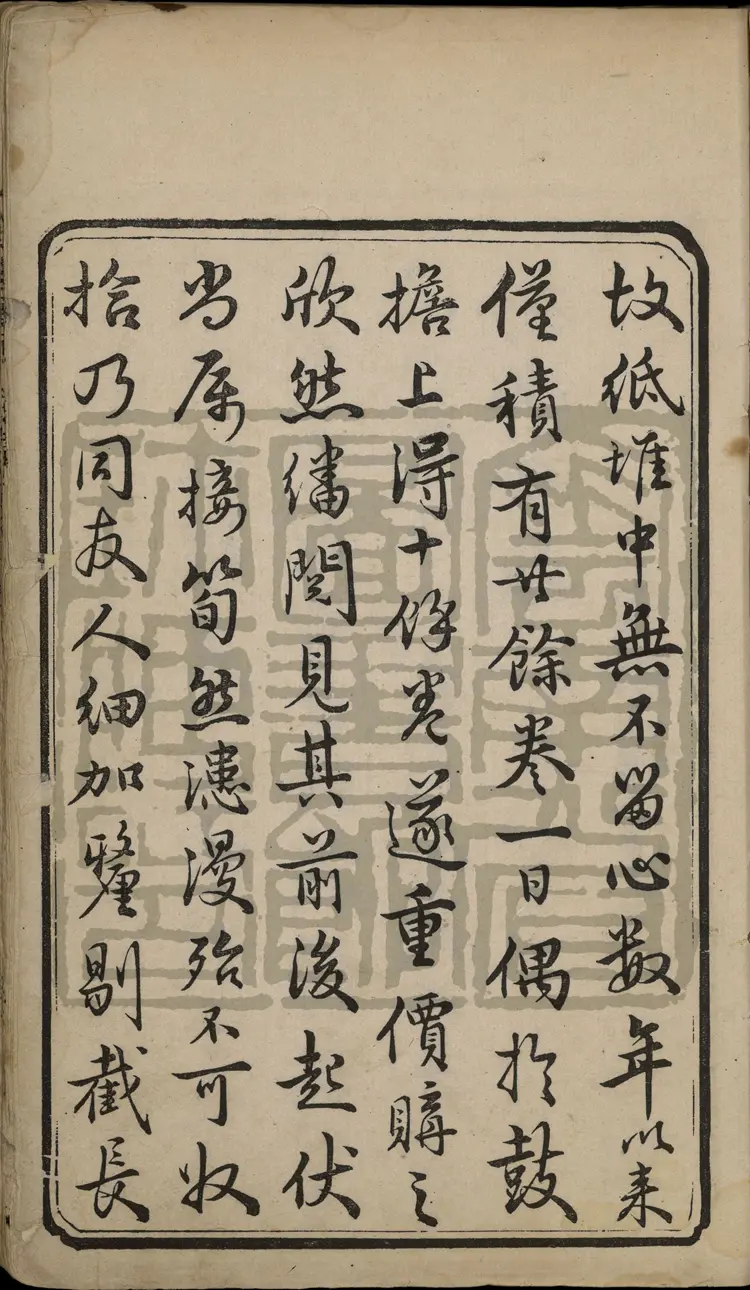 故紙堆中無不留心數年以来
僅積有廿餘卷一日偶於鼓
擔上得十餘卷遂重價購之
欣然繙閱見其前後起伏
尚属接筍然漶漫殆不可收
拾乃同友人細加釐剔截長